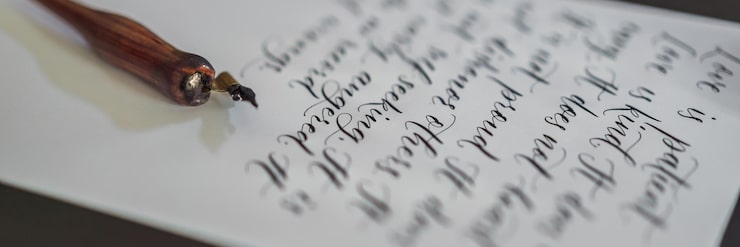 Love is patient
Love is kind. It does
envy. It does not boast
It is not proud. It does
not dishonor others. It
not self seeking. It is
easily angered. It
no record
wrongs